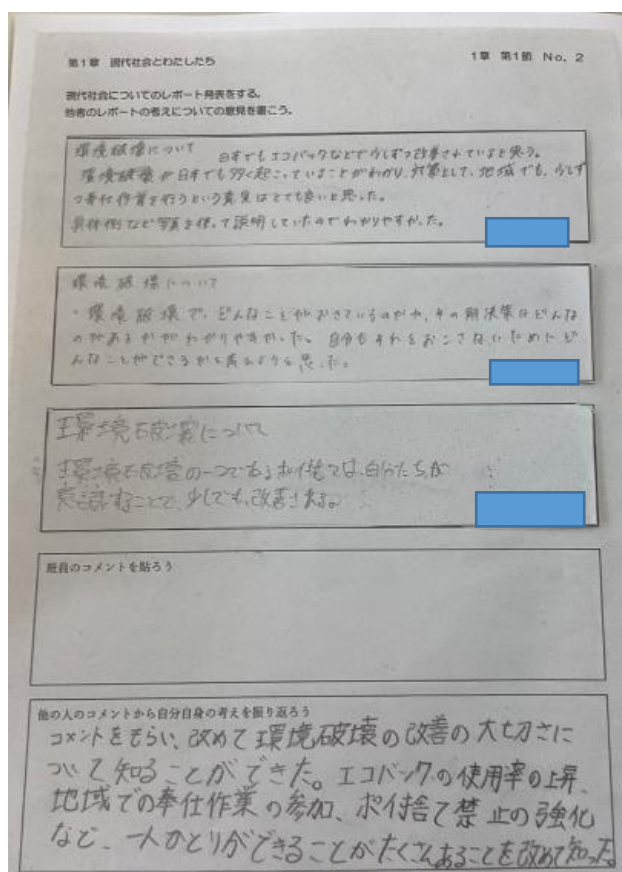 第1章 現代社会とわたしたち
1章 第1節 No. 2
現代社会についてのレポート発表をする。
他者のレポートの考えについての意見を書こう。
環境破壊について 日本でもエコバックなどで少しずつ改善されていると思う。
環境破壊が日本でも多く起こっていることがわかり、対策として、地域でも、少しず
つ奉仕作業を行うという意見はとても良いと思った。
具体例など写真を使って説明していたのでわかりやすかった。
環境破壊について
・環境破壊で、どんなことがおきているのかや、その解決策はどんな
のがあるかがわかりやすかった。自分もそれをおこさないためにど
んなことができるかを考えようと思った。
環境破壊について
環境破壊の一つであるポイ捨ては、自分たちが
意識することで、少しでも、改善できる。
班員のコメントを貼ろう
他の人のコメントから自分自身の考えを振り返ろう
コメントをもらい、改めて環境破壊の改善の大切さに
ついて知ることができた。エコバックの使用率の上昇、
地域での奉仕作業の参加、ポイ捨て禁止の強化
など、一人ひとりができることがたくさんあることを改めて知った。